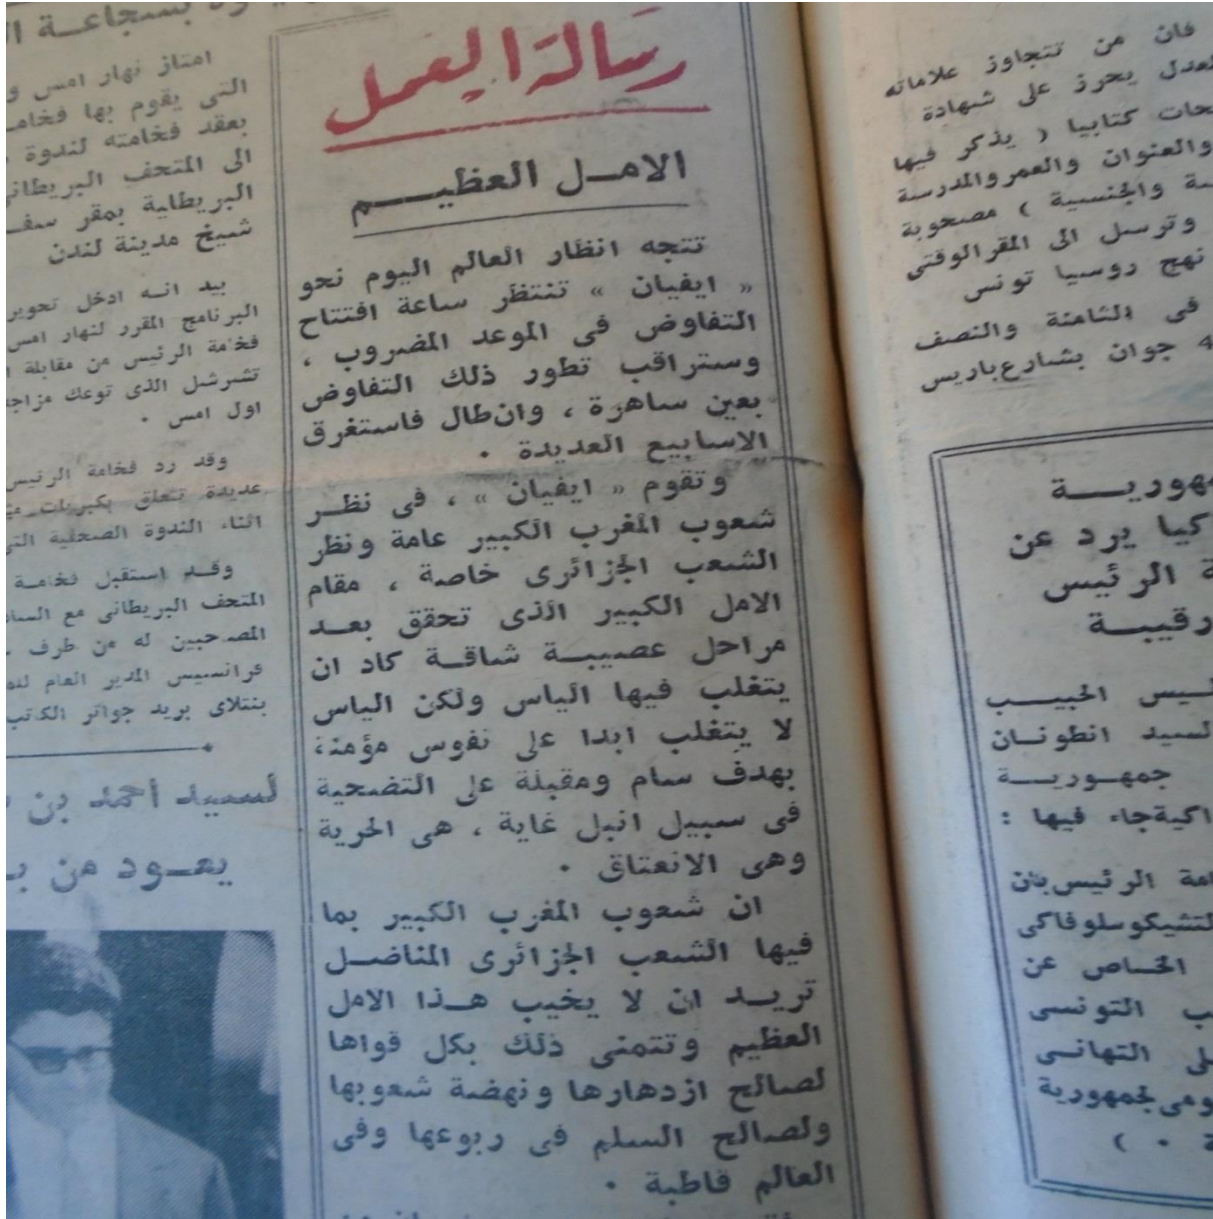 فان من تتجاوز علاماته
لعدل يحرز على شهادة
كتابيا ( يذكر فيها
والعنوان والعمر والمدرسة
والجنسية ) مصحوبة
وترسل الى المقر الوقتى
نهج روسيا تونس
فى الثامنة والنصف
4 جوان بشارع باريس
هورية
كيا يرد عن
ة الرئيس
رقيبة
ئيس الحبيب
لسيد انطونان
جمهورية
اكية جاء فيها :
امة الرئيس بان
لتشيكوسلوفاكى
الخاص عن
ب التونسى
لى التهانى
ومى لجمهورية
ة . )
رسالة العمل
الامل العظيم
تتجه انظار العالم اليوم نحو
« ايفيان » تنتظر ساعة افتتاح
التفاوض فى الموعد المضروب ،
وستراقب تطور ذلك التفاوض
بعين ساهرة ، وان طال فاستغرق
الاسابيع العديدة .
وتقوم « ايفيان » ، فى نظر
شعوب المغرب الكبير عامة ونظر
الشعب الجزائرى خاصة ، مقام
الامل الكبير الذى تحقق بعد
مراحل عصيبة شاقة كاد ان
يتغلب فيها الياس ولكن الياس
لا يتغلب ابدا على نفوس مؤمنة
بهدف سام ومقبلة على التضحية
فى سبيل انبل غاية ، هى الحرية
وهى الانعتاق .
ان شعوب المغرب الكبير بما
فيها الشعب الجزائرى المناضل
تريد ان لا يخيب هذا الامل
العظيم وتتمنى ذلك بكل قواها
لصالح ازدهارها ونهضة شعوبها
ولصالح السلم فى ربوعها وفى
العالم قاطبة .
بشجاعة
امتاز نهار امس و
التى يقوم بها فخامـ
بعقد فخامته لندوة
الى المتحف البريطانى
البريطانية بمقر سفـ
شيخ مدينة لندن
بيد انه ادخل تحوير
البرنامج المقرر لنهار امس
فخامة الرئيس من مقابلة
تشرشل الذى توعك مزاجه
اول امس .
وقد رد فخامة الرئيس
عديدة تتعلق بكبريات
اثناء الندوة الصحفية التى
وقد استقبل فخامة
المتحف البريطانى مع الساد
المصاحبين له من طرف
فرانسيس المدير العام
بنتلاى بريد جواتر الكاتب
لسيد أحمد بن
يعود من